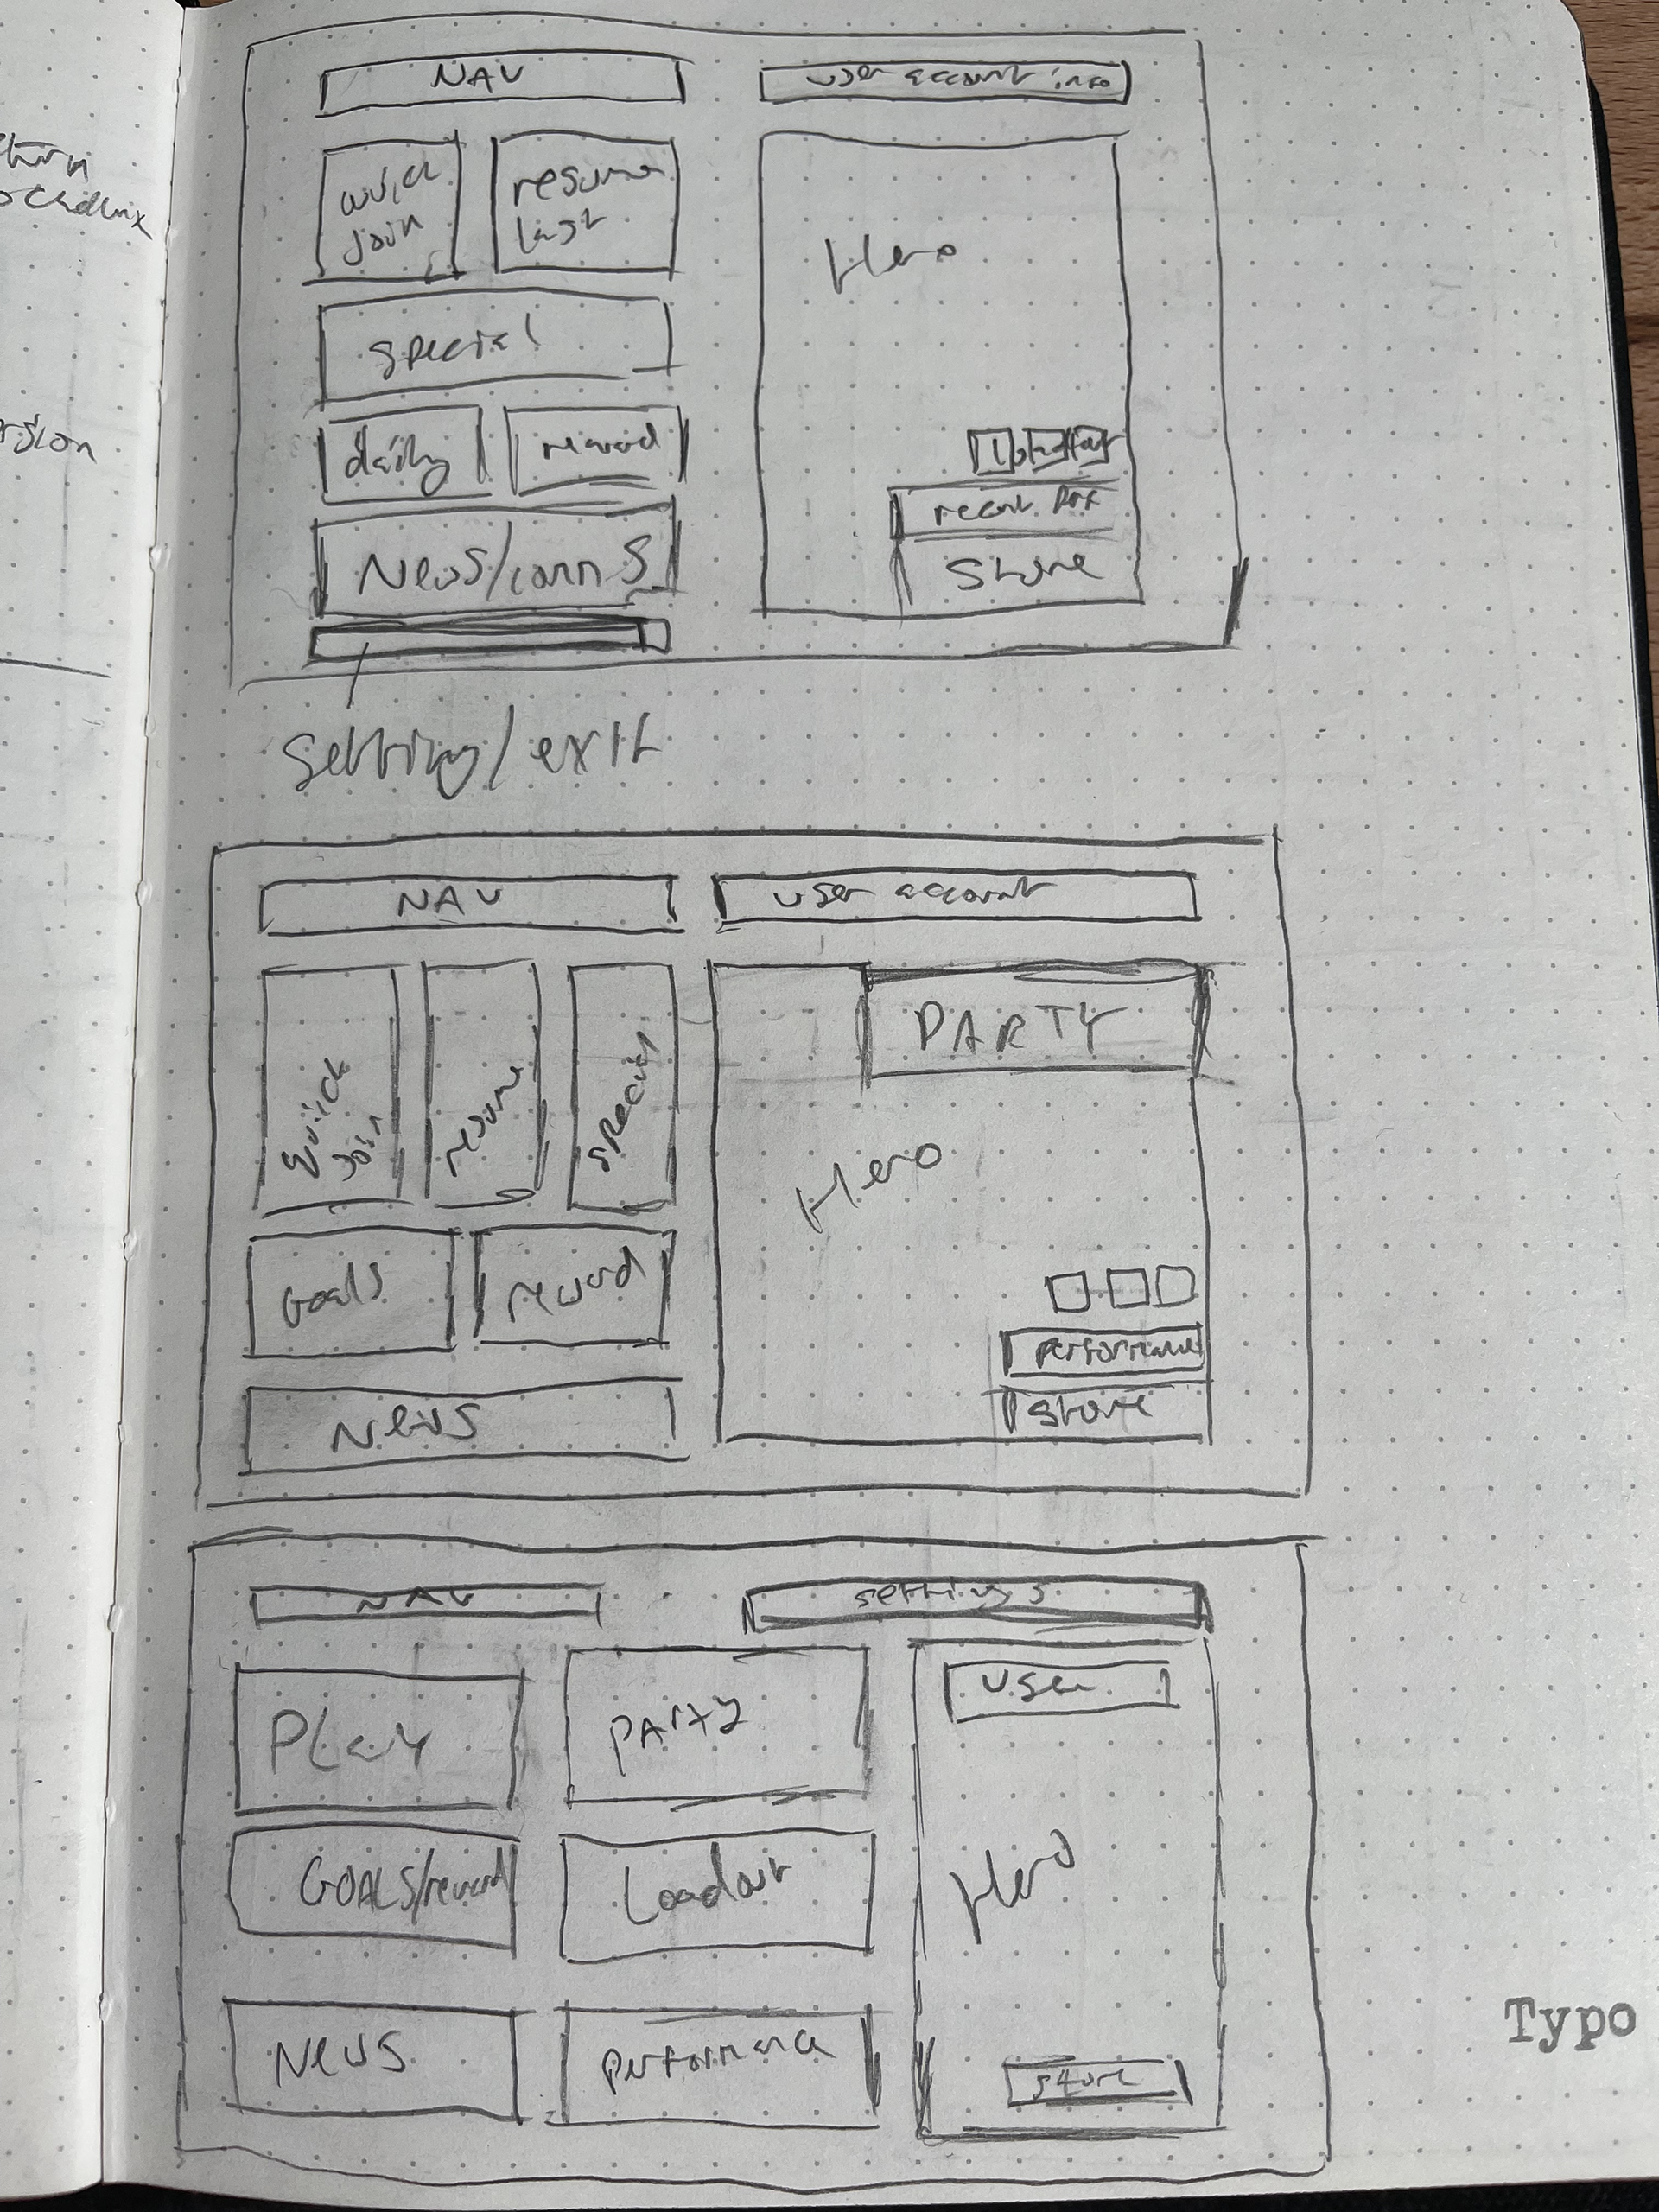 NAV
user account info
quick
join
resume
last
Hero
special
daily
reward
recent
News/comms
store
setting/exit
NAV
user account
PARTY
Quick
Join
resume
special
Hero
Goals
reward
performance
store
News
NAV
settings
Play
PARTY
user
GOALS/reward
Loadout
Hero
News
performance
store
Typo